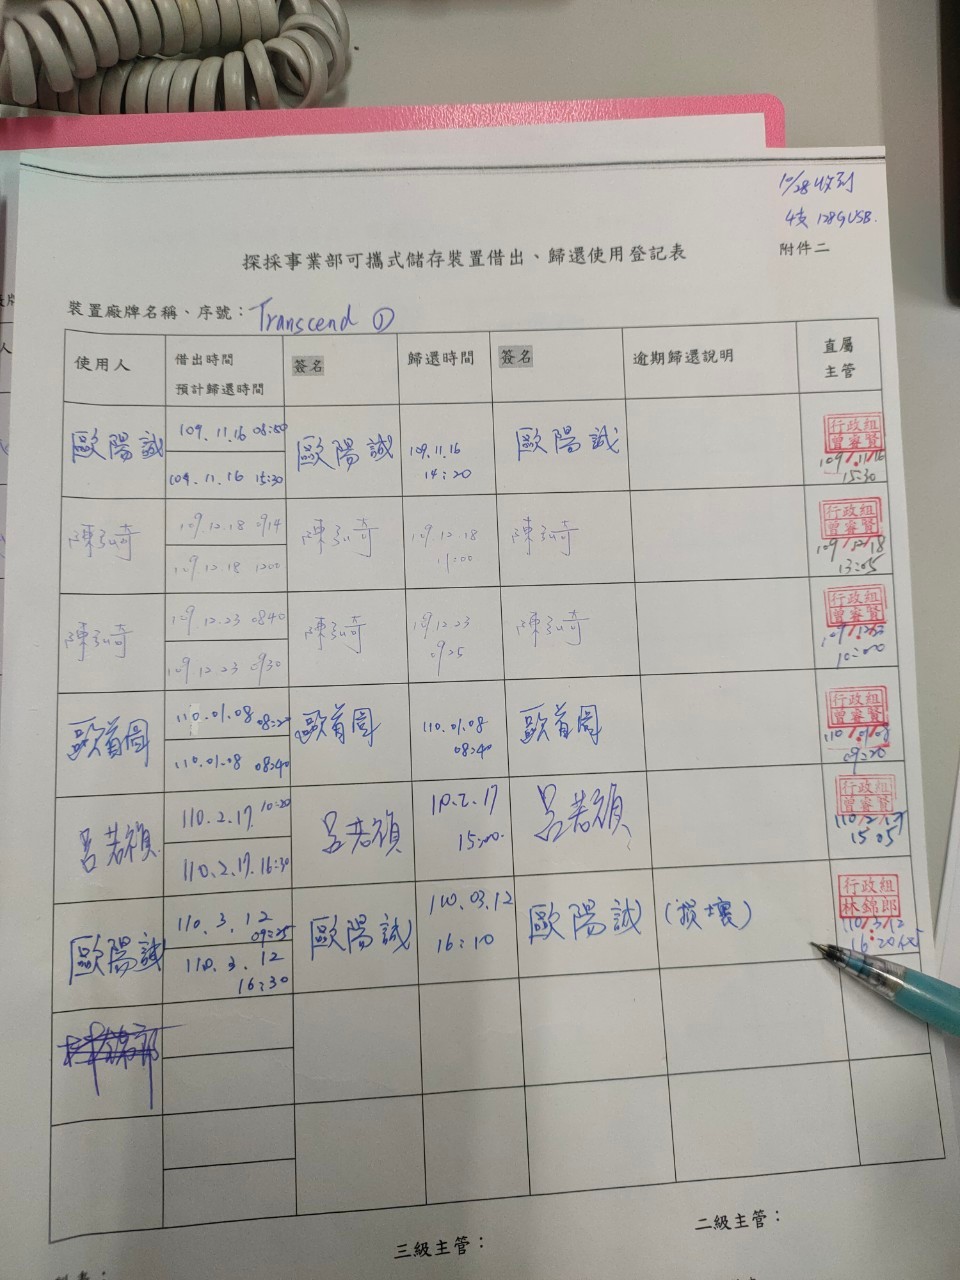 10/28收到
4支 128G USB.
附件二
探採事業部可攜式儲存裝置借出、歸還使用登記表
裝置廠牌名稱、序號：Transcend ①
使用人
借出時間
預計歸還時間
簽名
歸還時間
簽名
逾期歸還說明
直屬
主管
歐陽誠
109.11.16 08:50
109.11.16 15:30
歐陽誠
109.11.16
14:20
歐陽誠
行政組
曾睿賢
109/11/16
15:30
陳弘琦
109.12.18 0914
109.12.18 1200
陳弘琦
109.12.18
11:00
陳弘琦
行政組
曾睿賢
109/12/18
13:05
陳弘琦
109.12.23 0840
109.12.23 0930
陳弘琦
109.12.23
0925
陳弘琦
行政組
曾睿賢
109/12/23
10:00
110.01.08 08:20
110.01.08 08:40
110.01.08
08:40
行政組
曾睿賢
110/01/08
09:20
呂若禎
110.2.17. 10:20
110.2.17. 16:30
呂若禎
110.2.17
15:00.
呂若禎
行政組
曾睿賢
110/2/17
15:05
歐陽誠
110.3.12
09:25
110.3.12
16:30
歐陽誠
110.03.12
16:10
歐陽誠
(損壞)
行政組
林錦郎
110/3/12
16:20
三級主管：
二級主管：